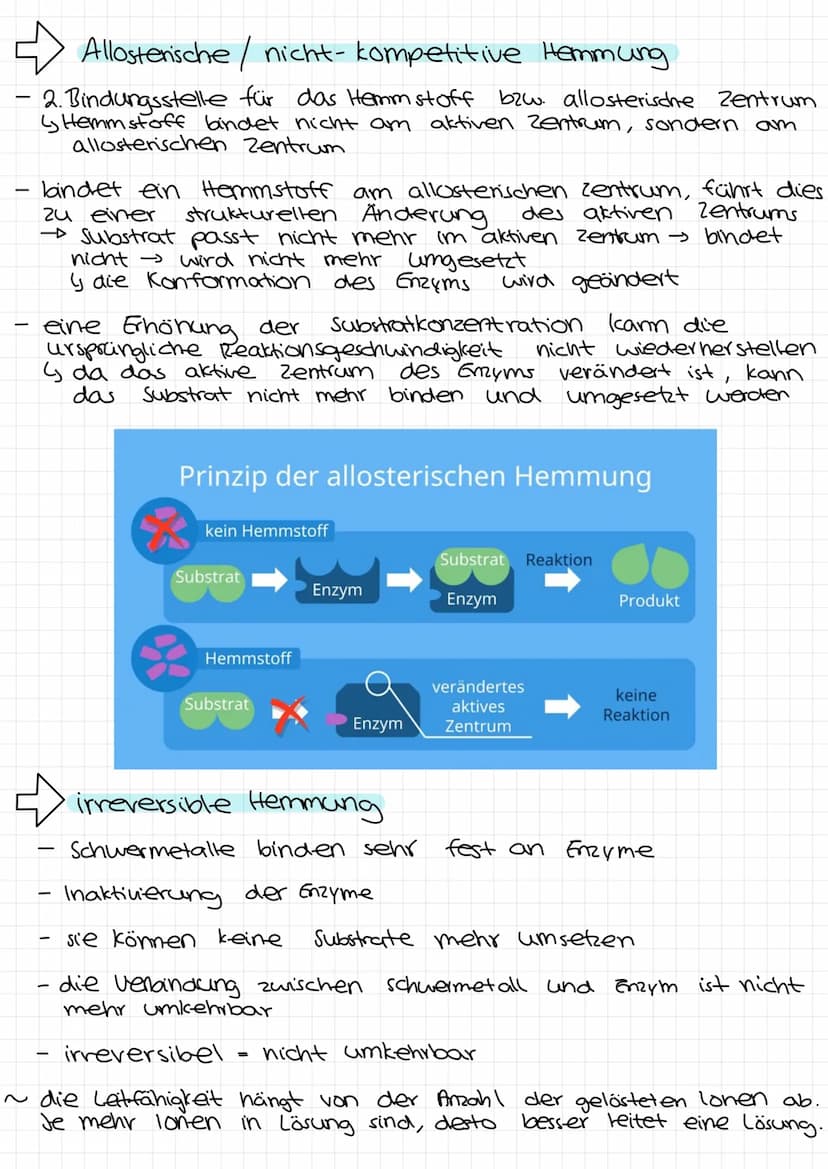 Allosterische / nicht-kompetitive Hemmung
- 2. Bindungsstelle für das Hemmstoff bzw. allosterische Zentrum
↳ Hemmstoff bindet nicht am aktiven Zentrum, sondern am
allosterischen Zentrum
- bindet ein Hemmstoff am allosterischen Zentrum, führt dies
zu einer strukturellen Änderung des aktiven Zentrums
→ Substrat passt nicht mehr im aktiven Zentrum → bindet
nicht → wird nicht mehr umgesetzt
↳ die Konformation des Enzyms wird geändert
- eine Erhöhung der Substratkonzentration kann die
ursprüngliche Reaktionsgeschwindigkeit nicht wiederherstellen
↳ da das aktive Zentrum des Enzyms verändert ist, kann
das Substrat nicht mehr binden und umgesetzt werden
Prinzip der allosterischen Hemmung
kein Hemmstoff
Substrat
Enzym
Substrat
Enzym
Reaktion
Produkt
Hemmstoff
Substrat
Enzym
verändertes
aktives
Zentrum
keine
Reaktion
irreversible Hemmung
- Schwermetalle binden sehr fest an Enzyme
- Inaktivierung der Enzyme
- sie können keine Substrate mehr umsetzen
- die Verbindung zwischen Schwermetall und Enzym ist nicht
mehr umkehrbar
- irreversibel = nicht umkehrbar
~ die Leitfähigkeit hängt von der Anzahl der gelösteten Ionen ab.
Je mehr Ionen in Lösung sind, desto besser leitet eine Lösung.